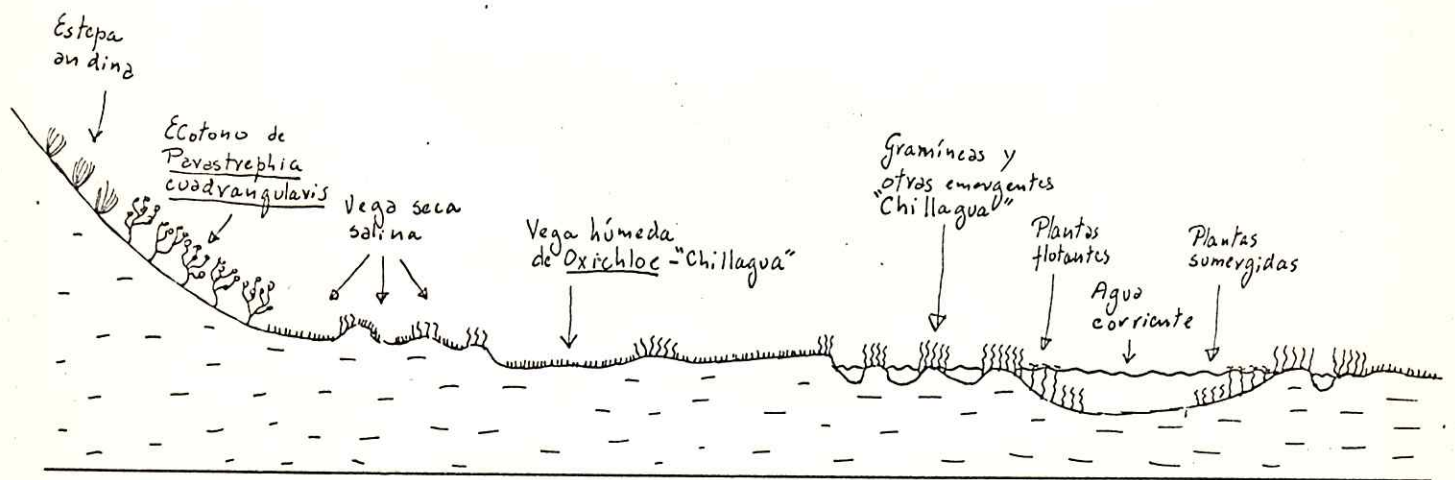 Estepa
andina
Ecotono de
Parastrephia
cuadrangularis
Vega seca
salina
Vega húmeda
de Oxichloe - "Chillagua"
Gramíneas y
otras emergentes
"Chillagua"
Plantas
flotantes
Agua
corriente
Plantas
sumergidas